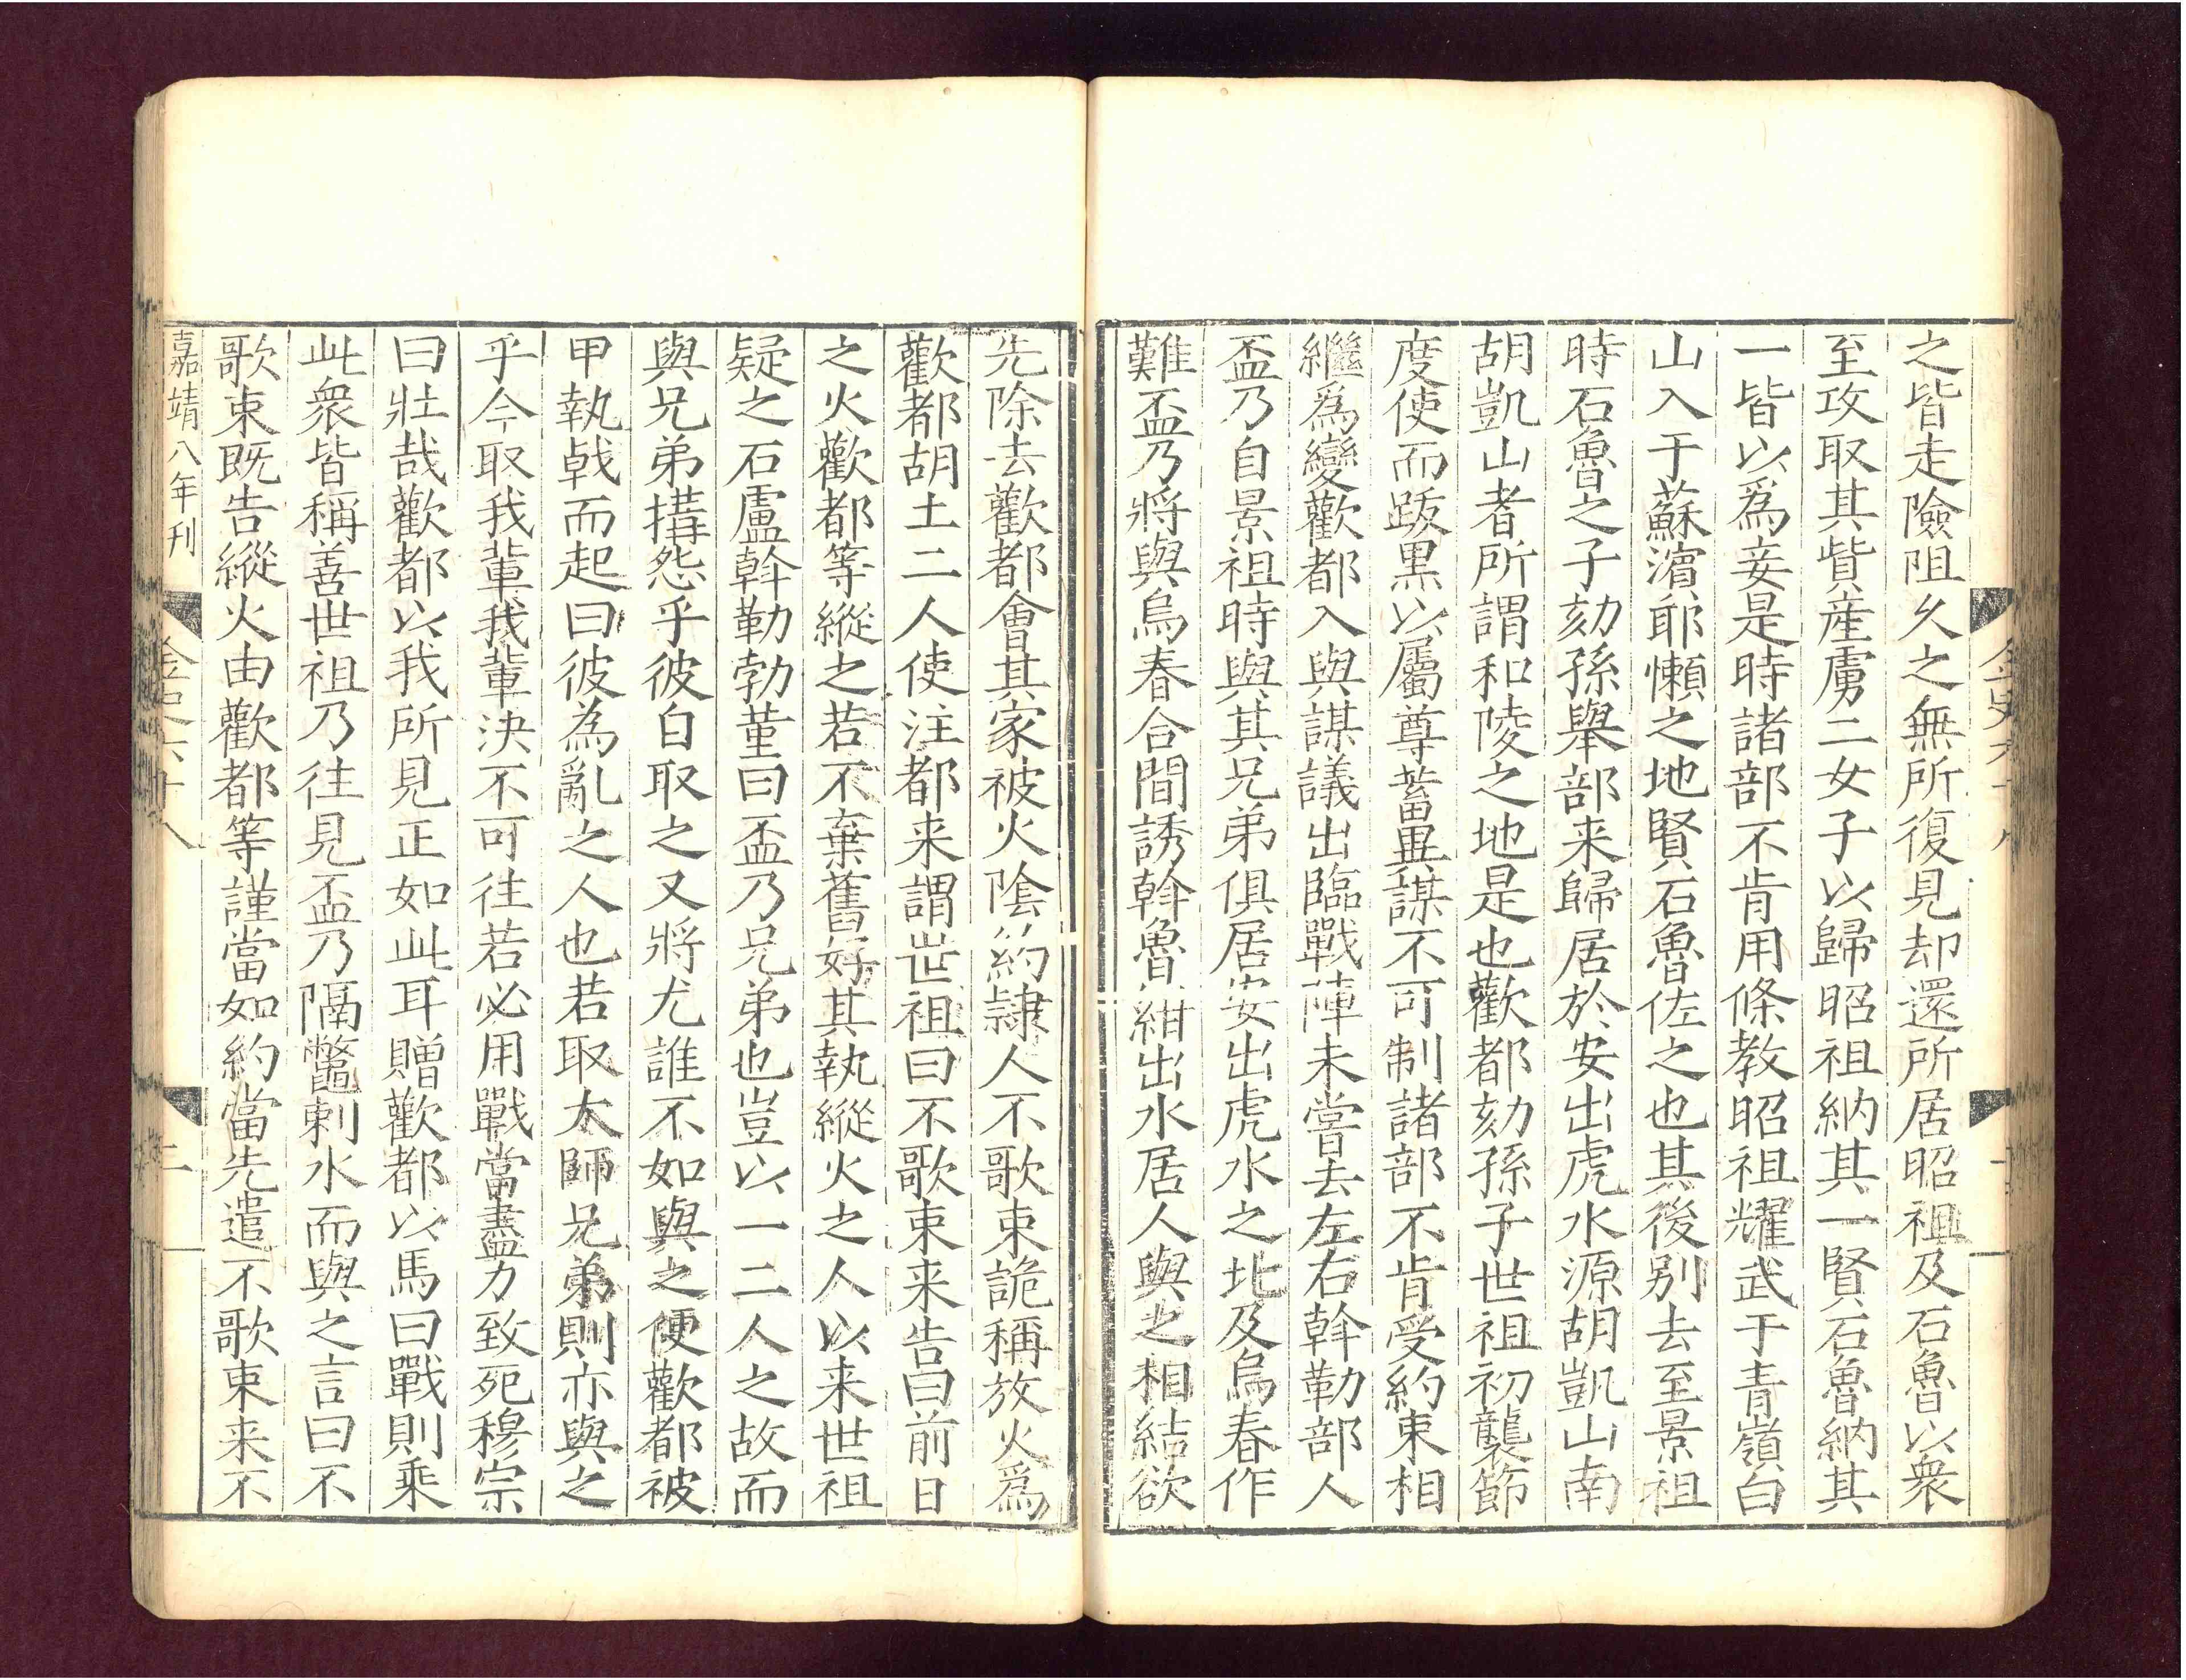 之皆走險阻久之無所復見却還所居昭祖及石魯以衆
至攻取其貲産虜二女子以歸昭祖納其一賢石魯納其
一皆以爲妾是時諸部不肯用條教昭祖耀武于青嶺白
山入于蘇濱耶懶之地賢石魯佐之也其後别去至景祖
時石魯之子劾孫舉部来歸居於安出虎水源胡凱山南
胡凱山者所謂和陵之地是也歡都劾孫子世祖初襲節
度使而跋黑以屬尊蓄異謀不可制諸部不肯受約束相
繼爲變歡都入與謀議出臨戰陣未嘗去左右斡勒部人
盃乃自景祖時與其兄弟俱居安出虎水之北及烏春作
難盃乃將與烏春合間誘斡魯紺出水居人與之相結欲
先除去歡都會其家被火陰約隷人不歌束詭稱放火爲
歡都胡土二人使注都来謂世祖曰不歌束来告曰前日
之火歡都等縱之若不棄舊好其執縱火之人以来世祖
疑之石盧斡勒勃菫曰盃乃兄弟也豈以一二人之故而
與兄弟搆怨乎彼自取之又將尤誰不如與之便歡都被
甲執戟而起曰彼為亂之人也若取太師兄弟則亦與之
乎今取我輩我輩決不可往若必用戰當盡力致死穆宗
曰壯哉歡都以我所見正如此耳贈歡都以馬曰戰則乘
此衆皆稱善世祖乃往見盃乃隔鼈剌水而與之言曰不
歌束既告縱火由歡都等謹當如約當先遣不歌束来不
嘉靖八年刊
金史六十八
二